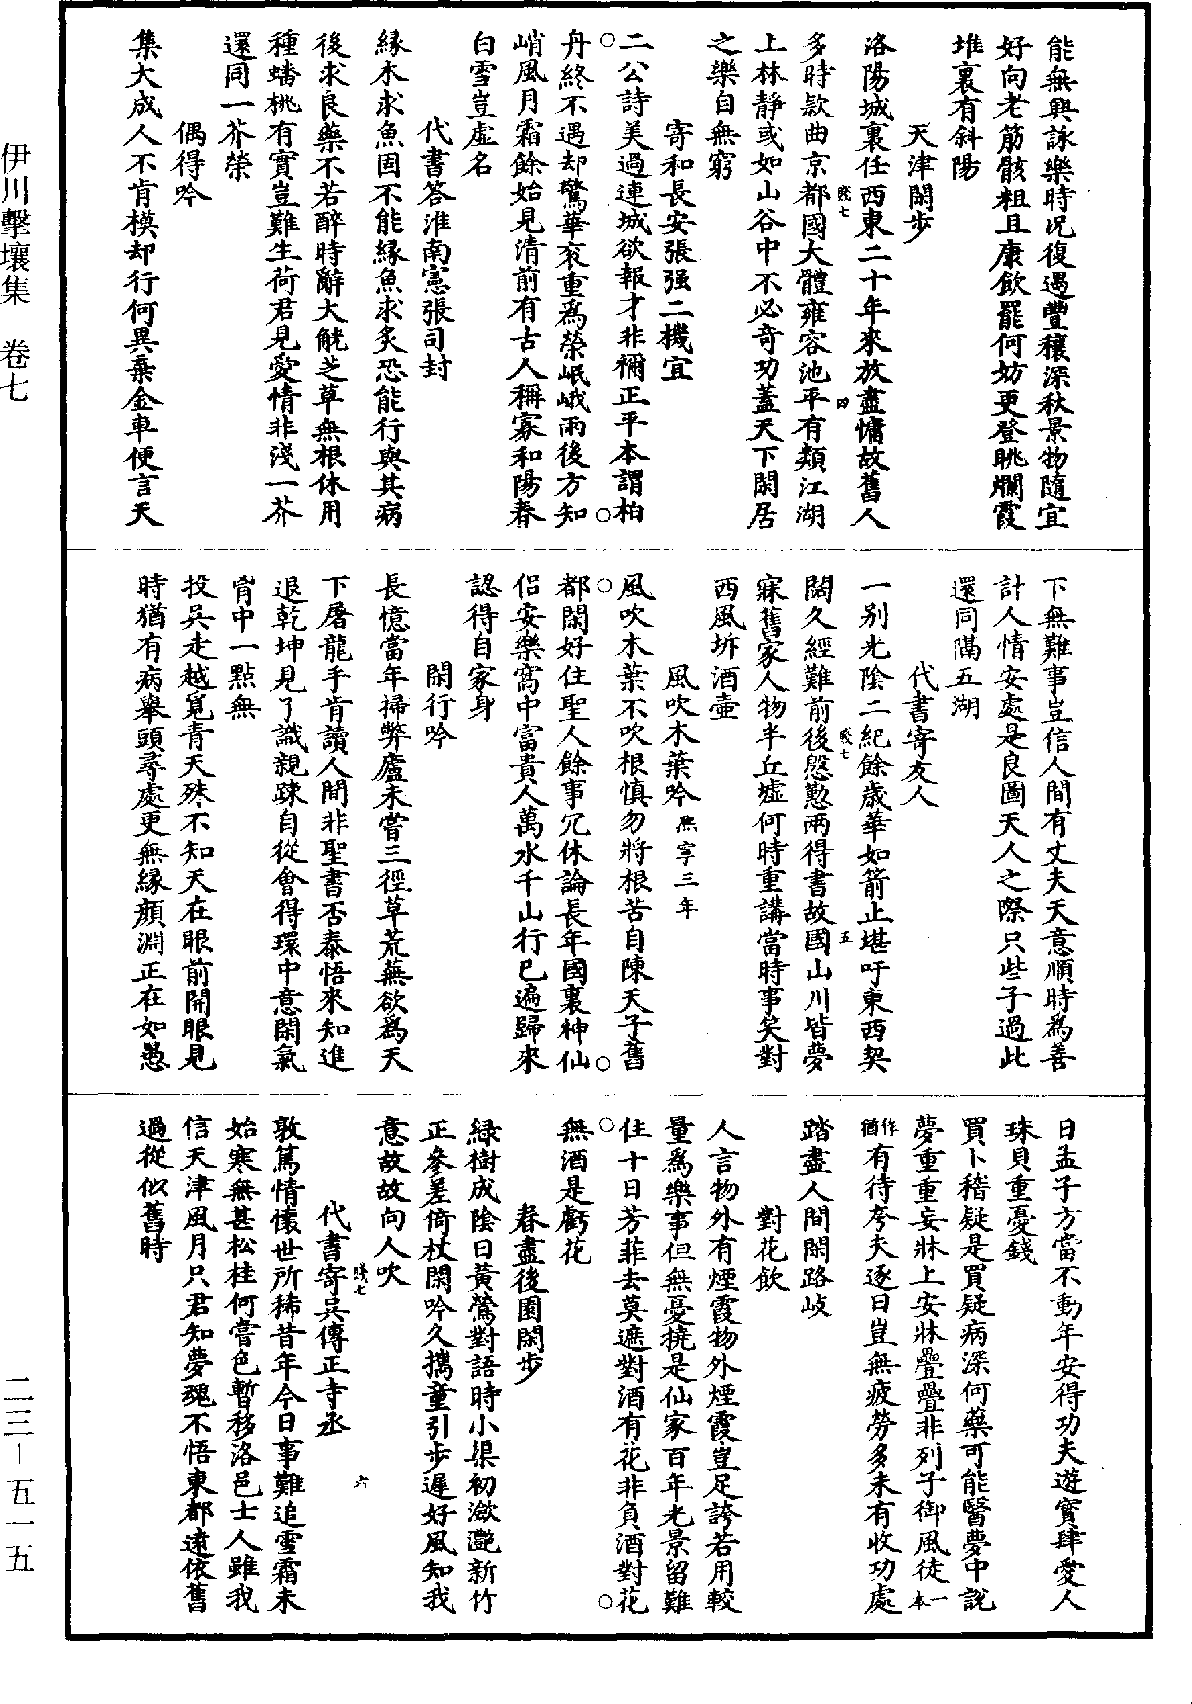 伊川擊壤集　卷七
能無興詠樂時況復遇豐穰深秋景物隨宜
好向老筋骸粗且康飲罷何妨更登眺爛霞
堆裏有斜陽
天津閑步
洛陽城裏任西東二十年來放盡慵故舊人
多時款曲京都國大體雍容池平有類江湖
上林靜或如山谷中不必奇功蓋天下閑居
之樂自無窮
寄和長安張强二機宜
二公詩美過連城欲報才非禰正平本謂柏
丹終不遇却驚華衮重爲榮岷峨雨後方知
峭風月霜餘始見清前有古人稱寡和陽春
白雪豈虛名
代書答淮南憲張司封
緣木求魚固不能緣魚求炙恐能行與其病
後求良藥不若醉時辭大觥芝草無根休用
種蟠桃有實豈難生荷君見愛情非淺一芥
還同一芥榮
偶得吟
集大成人不肯模却行何異棄金車便言天
賤七
四
下無難事豈信人間有丈夫天意順時爲善
計人情安處是良圖天人之際只些子過此
還同隔五湖
代書寄友人
一别光陰二紀餘歲華如箭止堪吁東西契
闊久經難前後慇懃兩得書故國山川皆夢
寐舊家人物半丘墟何時重講當時事矣對
西風拆酒壺
風吹木葉吟熙寧三年
風吹木葉不吹根慎勿將根苦自陳天子舊
都閑好住聖人餘事冗休論長年國裏神仙
侶安樂窩中富貴人萬水千山行已遍歸來
認得自家身
閑行吟
長憶當年掃弊廬未嘗三徑草荒蕪欲爲天
下屠龍手肯讀人間非聖書否泰悟來知進
退乾坤見了識親踈自從會得環中意閑氣
胷中一點無
投吳走越覓青天殊不知天在眼前開眼見
時猶有病舉頭尋處更無緣顏淵正在如愚
賤七
五
日孟子方當不動年安得功夫遊寶肆愛人
珠貝重憂錢
買卜稽疑是買疑病深何藥可能醫夢中說
夢重重妄牀上安牀疊疊非列子御風徒一本
作猶有待夸夫逐日豈無疲勞多未有收功處
踏盡人間閑路岐
對花飲
人言物外有煙霞物外煙霞豈足誇若用較
量爲樂事但無憂撓是仙家百年光景留難
住十日芳菲去莫遮對酒有花非負酒對花
無酒是虧花
春盡後園閑步
綠樹成陰日黃鶯對語時小渠初瀲灩新竹
正參差倚杖閑吟久攜童引步遲好風知我
意故故向人吹
代書寄吳傳正寺丞
敦篤情懷世所稀昔年今日事難追雪霜未
始寒無甚松桂何嘗色暫移洛邑士人雖我
信天津風月只君知夢魂不悟東都遠依舊
過從似舊時
賤七
六
二三—五一五